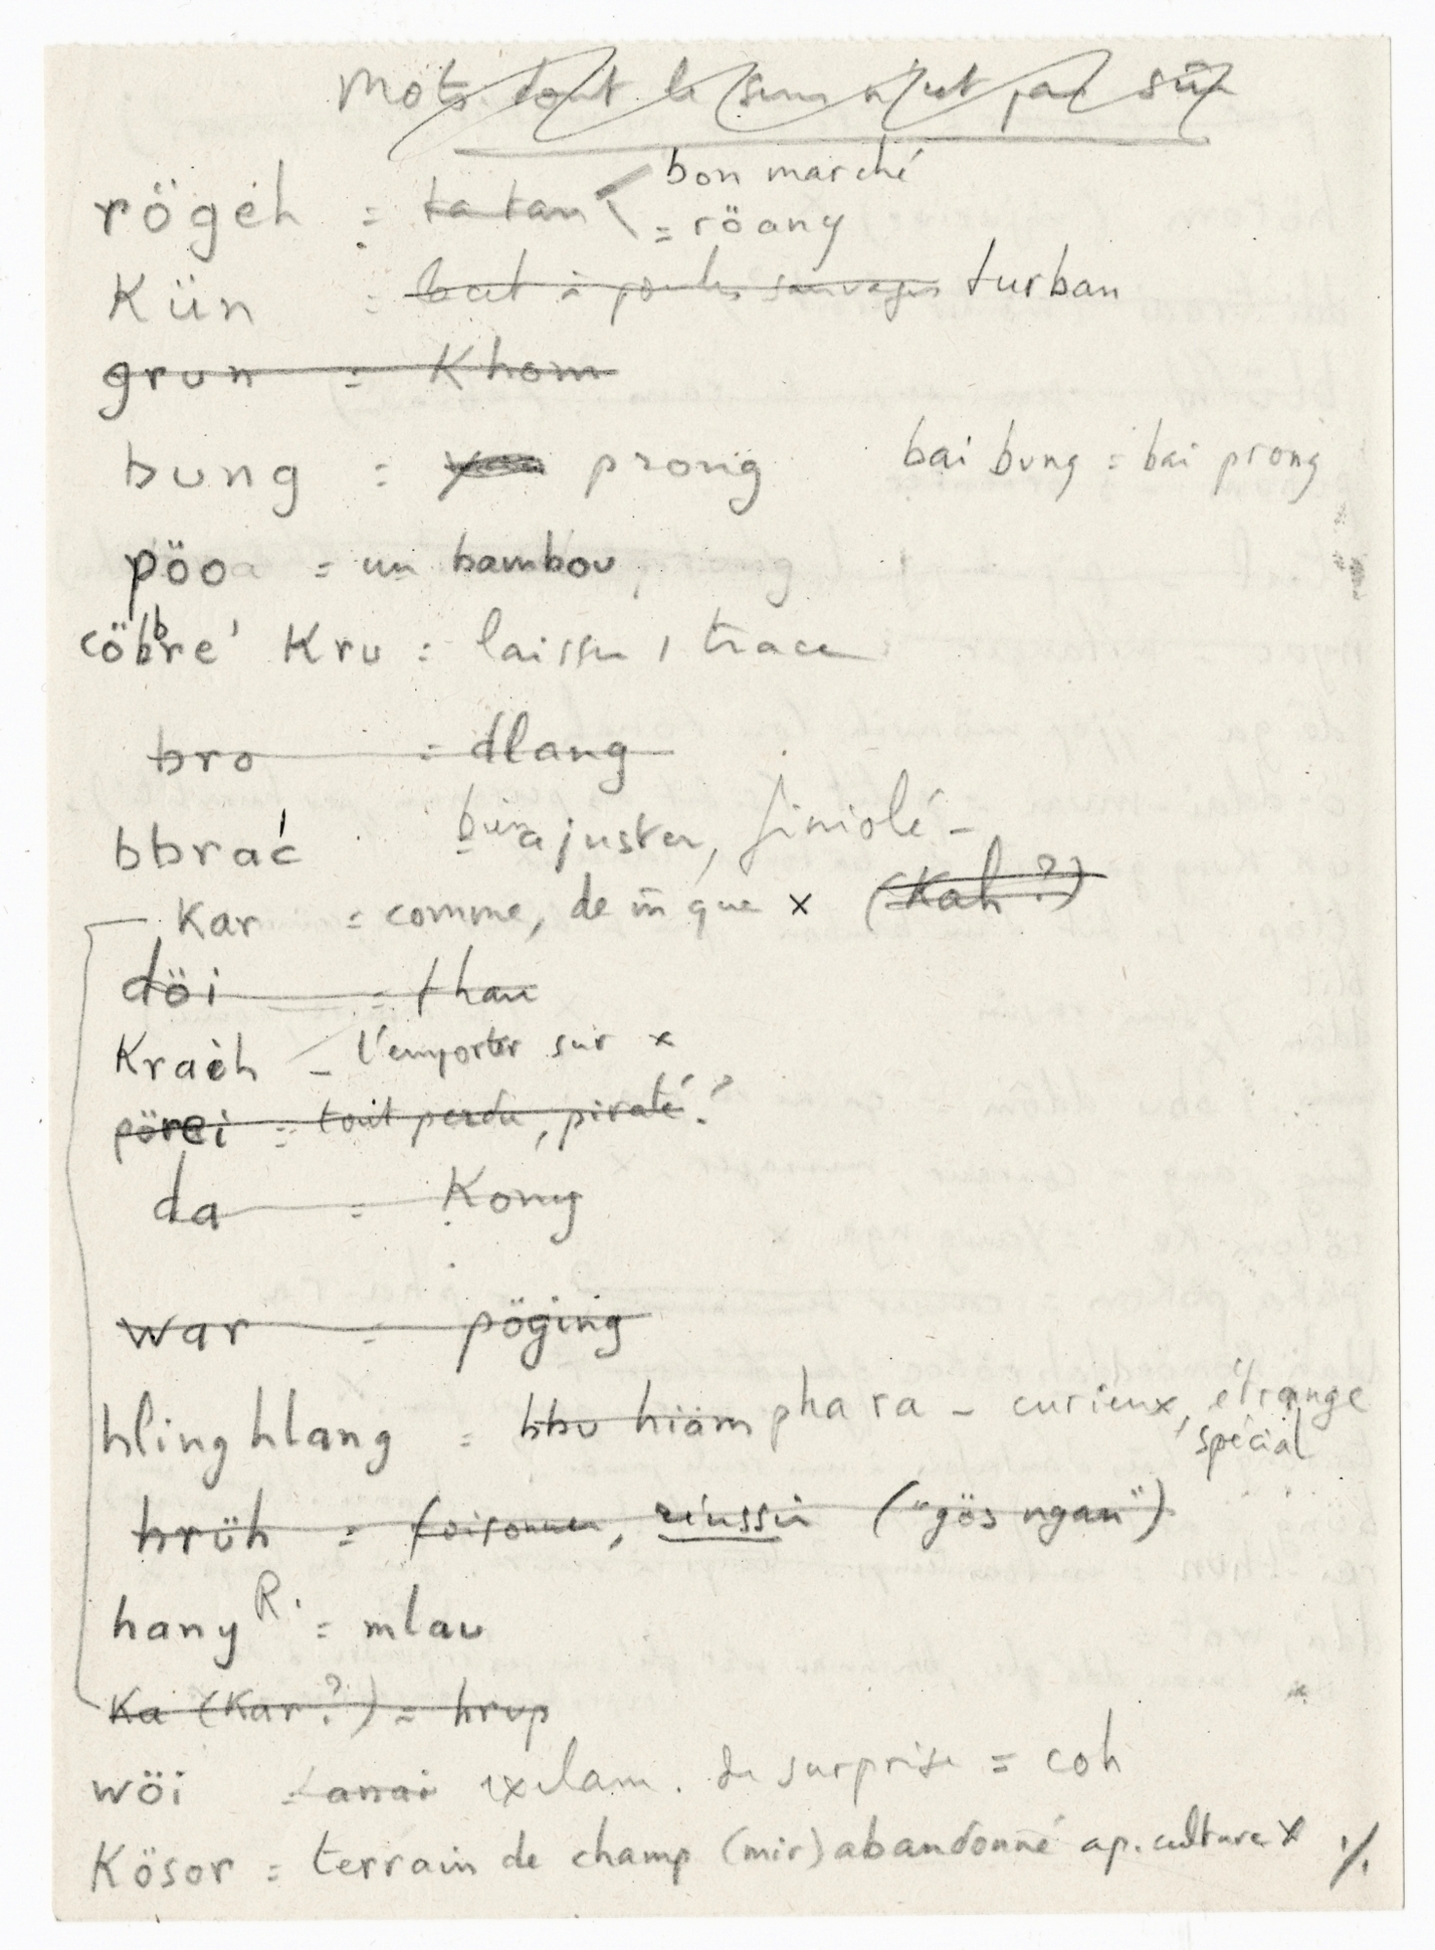 Mots dont le sens n'est pas sûr
rögeh = ta tam bon marché
= röany
Kün = turban
grun = Khom
bung = prong bai bung = bai prong
pöo = un bambou
cöbbre' Kru = laisser 1 trace
bro = dlang
bbrać bien ajuster, finiolé -
Kar = comme, de m̄ que x (Kah ?)
döi = than
Kraih - l'emporter sur x
pörei = tout perdu, piraté ?
da = Kony
war = pöging
hling hlang = bbu hiöm pha ra - curieux, étrange
spécial
hrüh = foisonner, réussir ("gös ngan")
hany R. = mlau
Ka (Kar ?) = hrup
wöi = exclam. de surprise = coh
Kösor = terrain de champ (mir) abandonné ap. culture x ./.